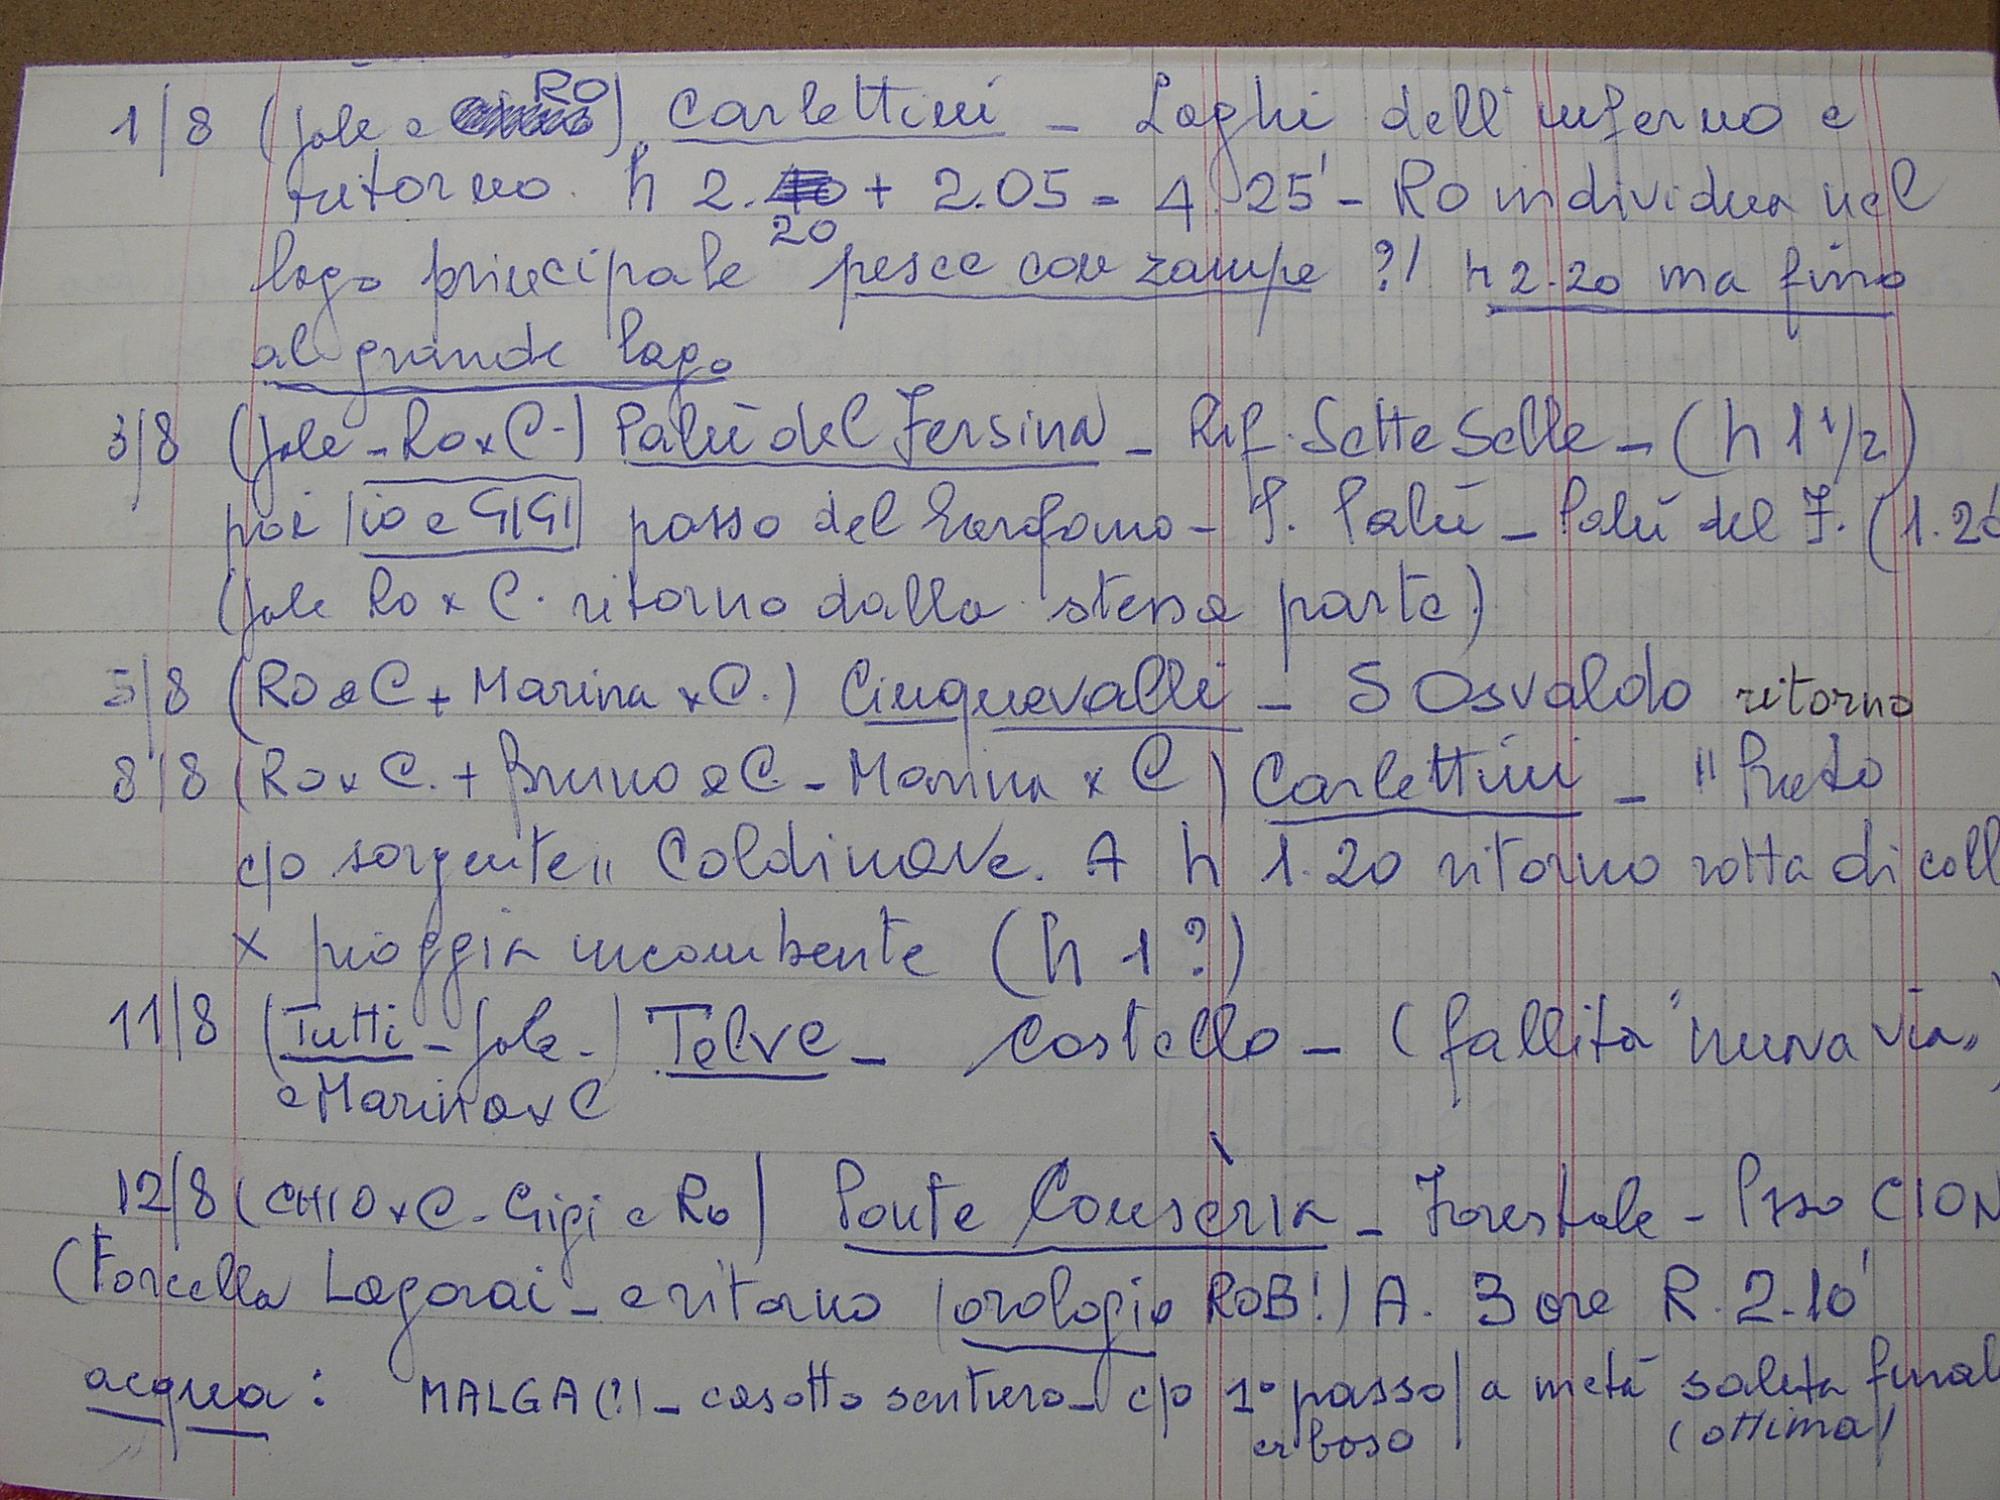 1/8 (Jole e RO) Carlettini - Laghi dell'inferno e
ritorno. h 2.20 + 2.05 = 4.25' - RO individua nel
lago principale pesce con zampe?! h 2.20 ma fino
al grande lago
3/8 (Jole - Ro x C.) Palù del Fersina - Rif. Sette Selle - (h 1 1/2)
poi |io e GIGI| passo del - P. Palù - Palù del F. (1.20
(Jole Ro x C. ritorno dalla stessa parte)
5/8 (RO e C + Marina x C.) Cinquevalli - S Osvaldo ritorno
8/8 (Ro x C. + Bruno e C - Marina x C) Carlettini - "Prato
c/o sorgente" Coldinave. A h 1.20 ritorno rotta di coll
x pioggia incombente (h 1?)
11/8 (Tutti - Jole -) Telve - Castello - (fallita "nuova via")
e Marina x C
12/8 (CHIO x C - Gigi e Ro) Ponte Consèria - Forestale - Psso CION
(Forcella Lagorai - e ritorno (orologio ROB!) A. 3 ore R. 2.10'
acqua: MALGA(?) - casotto sentiero - c/o 1° passo/ a metà salita final
erboso (ottima)